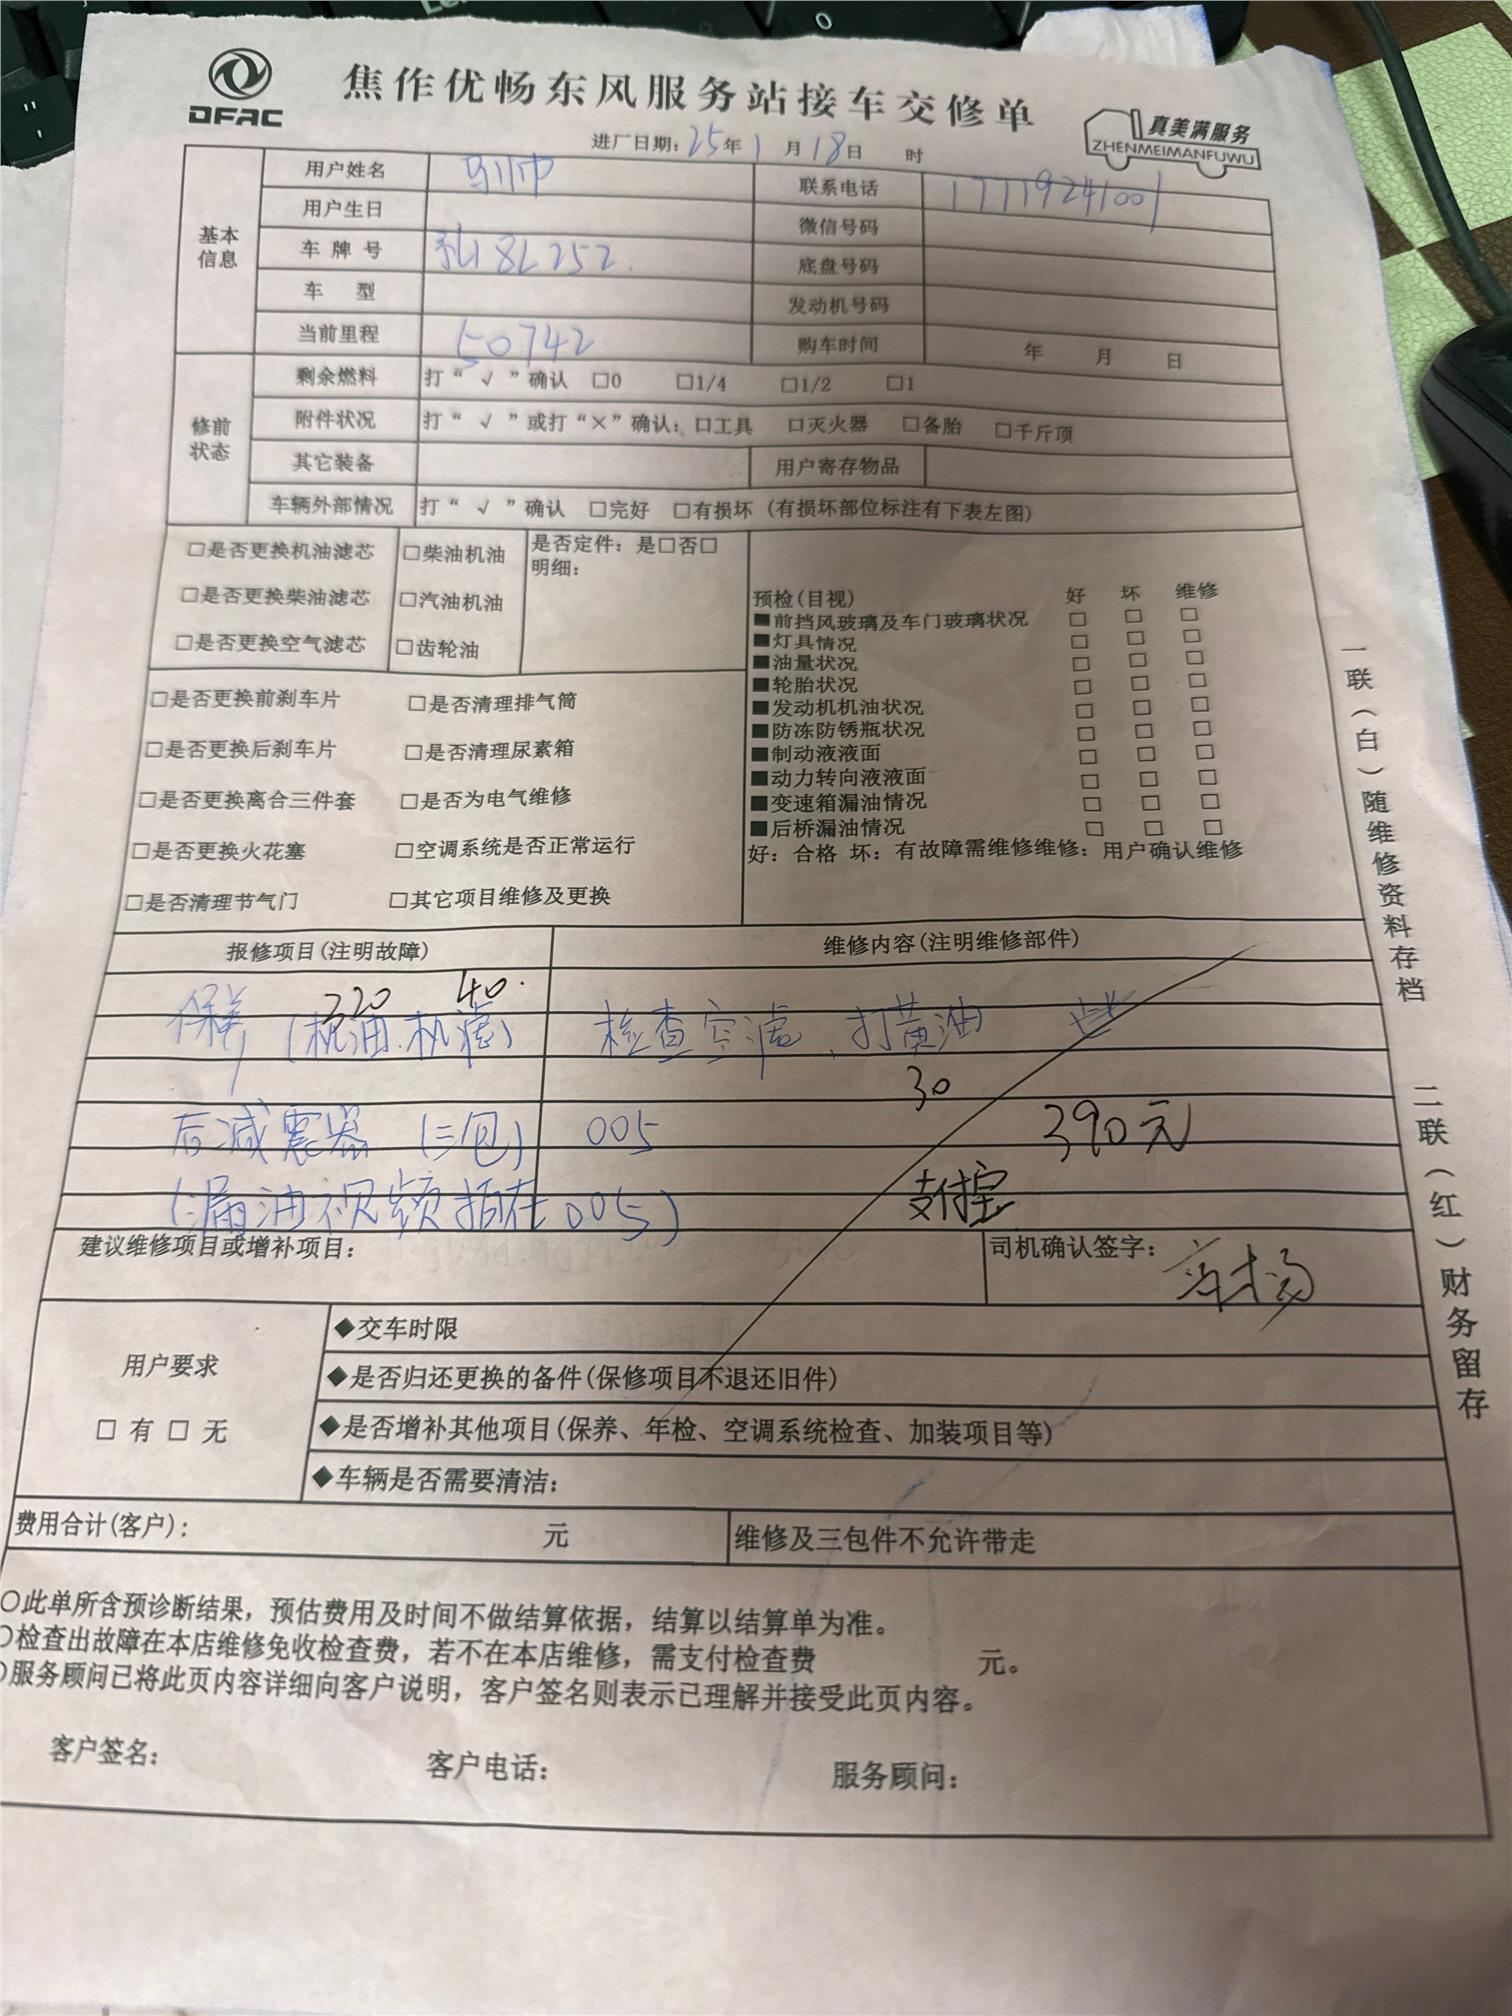 DFAC
焦作优畅东风服务站接车交修单
真美满服务
ZHENMEIMANFUWU
进厂日期:25年1月18日 时
基本信息
用户姓名 联系电话 17719241001
用户生日 微信号码
车牌号 8L252 底盘号码
车 型 发动机号码
当前里程 50742 购车时间 年 月 日
修前状态
剩余燃料 打“√”确认 □0 □1/4 □1/2 □1
附件状况 打“√”或打“×”确认:□工具 □灭火器 □备胎 □千斤顶
其它装备 用户寄存物品
车辆外部情况 打“√”确认 □完好 □有损坏(有损坏部位标注有下表左图)
□是否更换机油滤芯 □柴油机油
□是否更换柴油滤芯 □汽油机油
□是否更换空气滤芯 □齿轮油
是否定件:是□否□
明细:
□是否更换前刹车片 □是否清理排气筒
□是否更换后刹车片 □是否清理尿素箱
□是否更换离合三件套 □是否为电气维修
□是否更换火花塞 □空调系统是否正常运行
□是否清理节气门 □其它项目维修及更换
预检(目视) 好 坏 维修
■前挡风玻璃及车门玻璃状况 □ □ □
■灯具情况 □ □ □
■油量状况 □ □ □
■轮胎状况 □ □ □
■发动机机油状况 □ □ □
■防冻防锈瓶状况 □ □ □
■制动液液面 □ □ □
■动力转向液液面 □ □ □
■变速箱漏油情况 □ □ □
■后桥漏油情况 □ □ □
好:合格 坏:有故障需维修维修:用户确认维修
报修项目(注明故障) 维修内容(注明维修部件)
320 40.
保养(机油.机滤) 检查空滤、打黄油
30
后减震器(三包) 005 390元
(漏油视频拍在005) 支付宝
建议维修项目或增补项目: 司机确认签字:
用户要求
□ 有 □ 无
◆交车时限
◆是否归还更换的备件(保修项目不退还旧件)
◆是否增补其他项目(保养、年检、空调系统检查、加装项目等)
◆车辆是否需要清洁:
费用合计(客户): 元 维修及三包件不允许带走
○此单所含预诊断结果,预估费用及时间不做结算依据,结算以结算单为准。
○检查出故障在本店维修免收检查费,若不在本店维修,需支付检查费 元。
○服务顾问已将此页内容详细向客户说明,客户签名则表示已理解并接受此页内容。
客户签名: 客户电话: 服务顾问:
一联(白)随维修资料存档
二联(红)财务留存